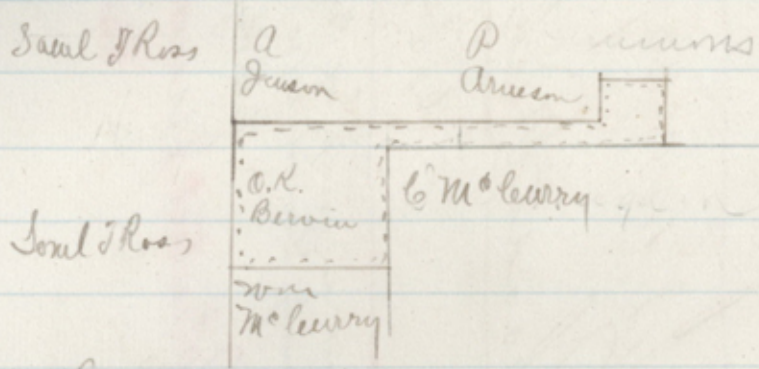 Saml T Ross
A
Jenson
P
Arneson
O.K.
C McCurry
Saml T Ross
Wm
McCurry